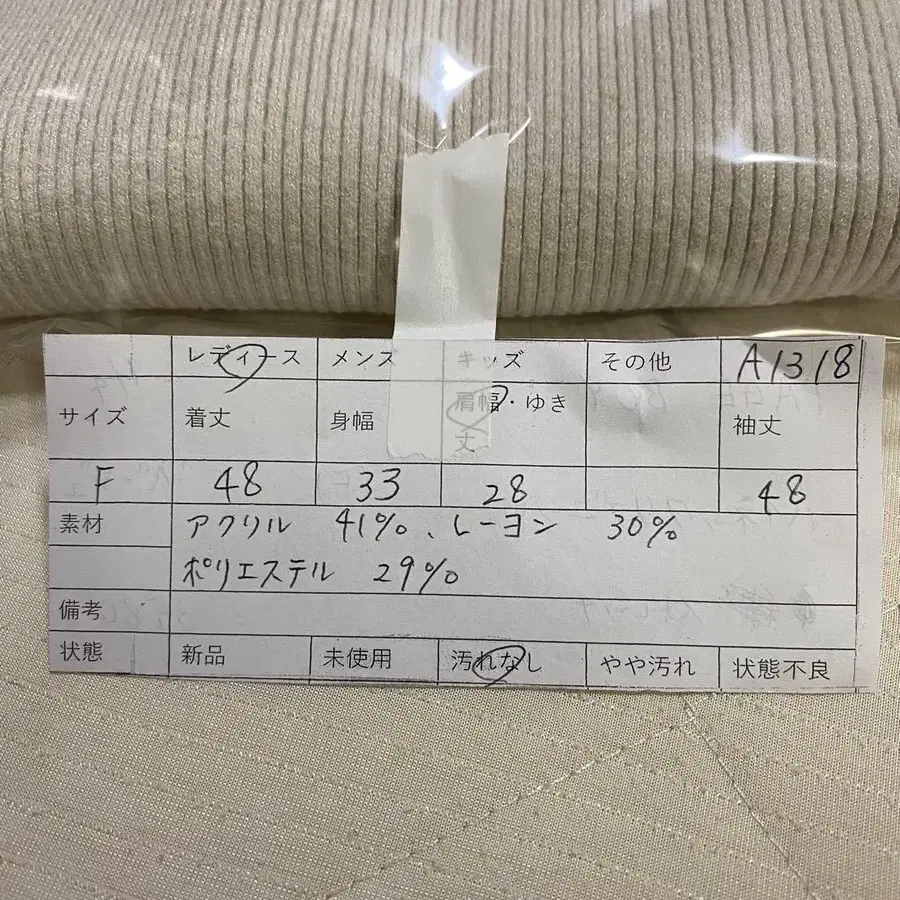 レディース メンズ キッズ その他 A1318
サイズ 着丈 身幅 肩幅・ゆき丈 袖丈
F 48 33 28 48
素材 アクリル 41%、レーヨン 30%
ポリエステル 29%
備考
状態 新品 未使用 汚れなし やや汚れ 状態不良